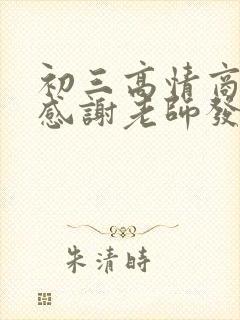 初三高情商
感謝老師發
朱清時